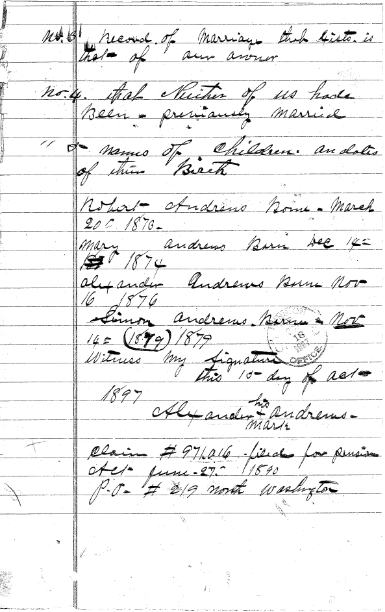 No. 3 Record of Marriage that Exists is
that of our owner
No. 4. that Neither of us had
Been - previously married
" 5 - names of Children. an dates
of their Birth
Robert Andrews Born - March
20 1870 -
Mary andrews Born Dec 14 =
1874
alexander Andrews Born Nov
16 1876
Simon andrews. Born - Nov
14 = (1879) 1879
Witness My Signature
this 15 day of oct -
1897
Alexander his + mark andrews -
Claim # 971,016 - filed for pension
Act June - 27 - 1890
P.O. # 219 north Washington
18
OFFICE